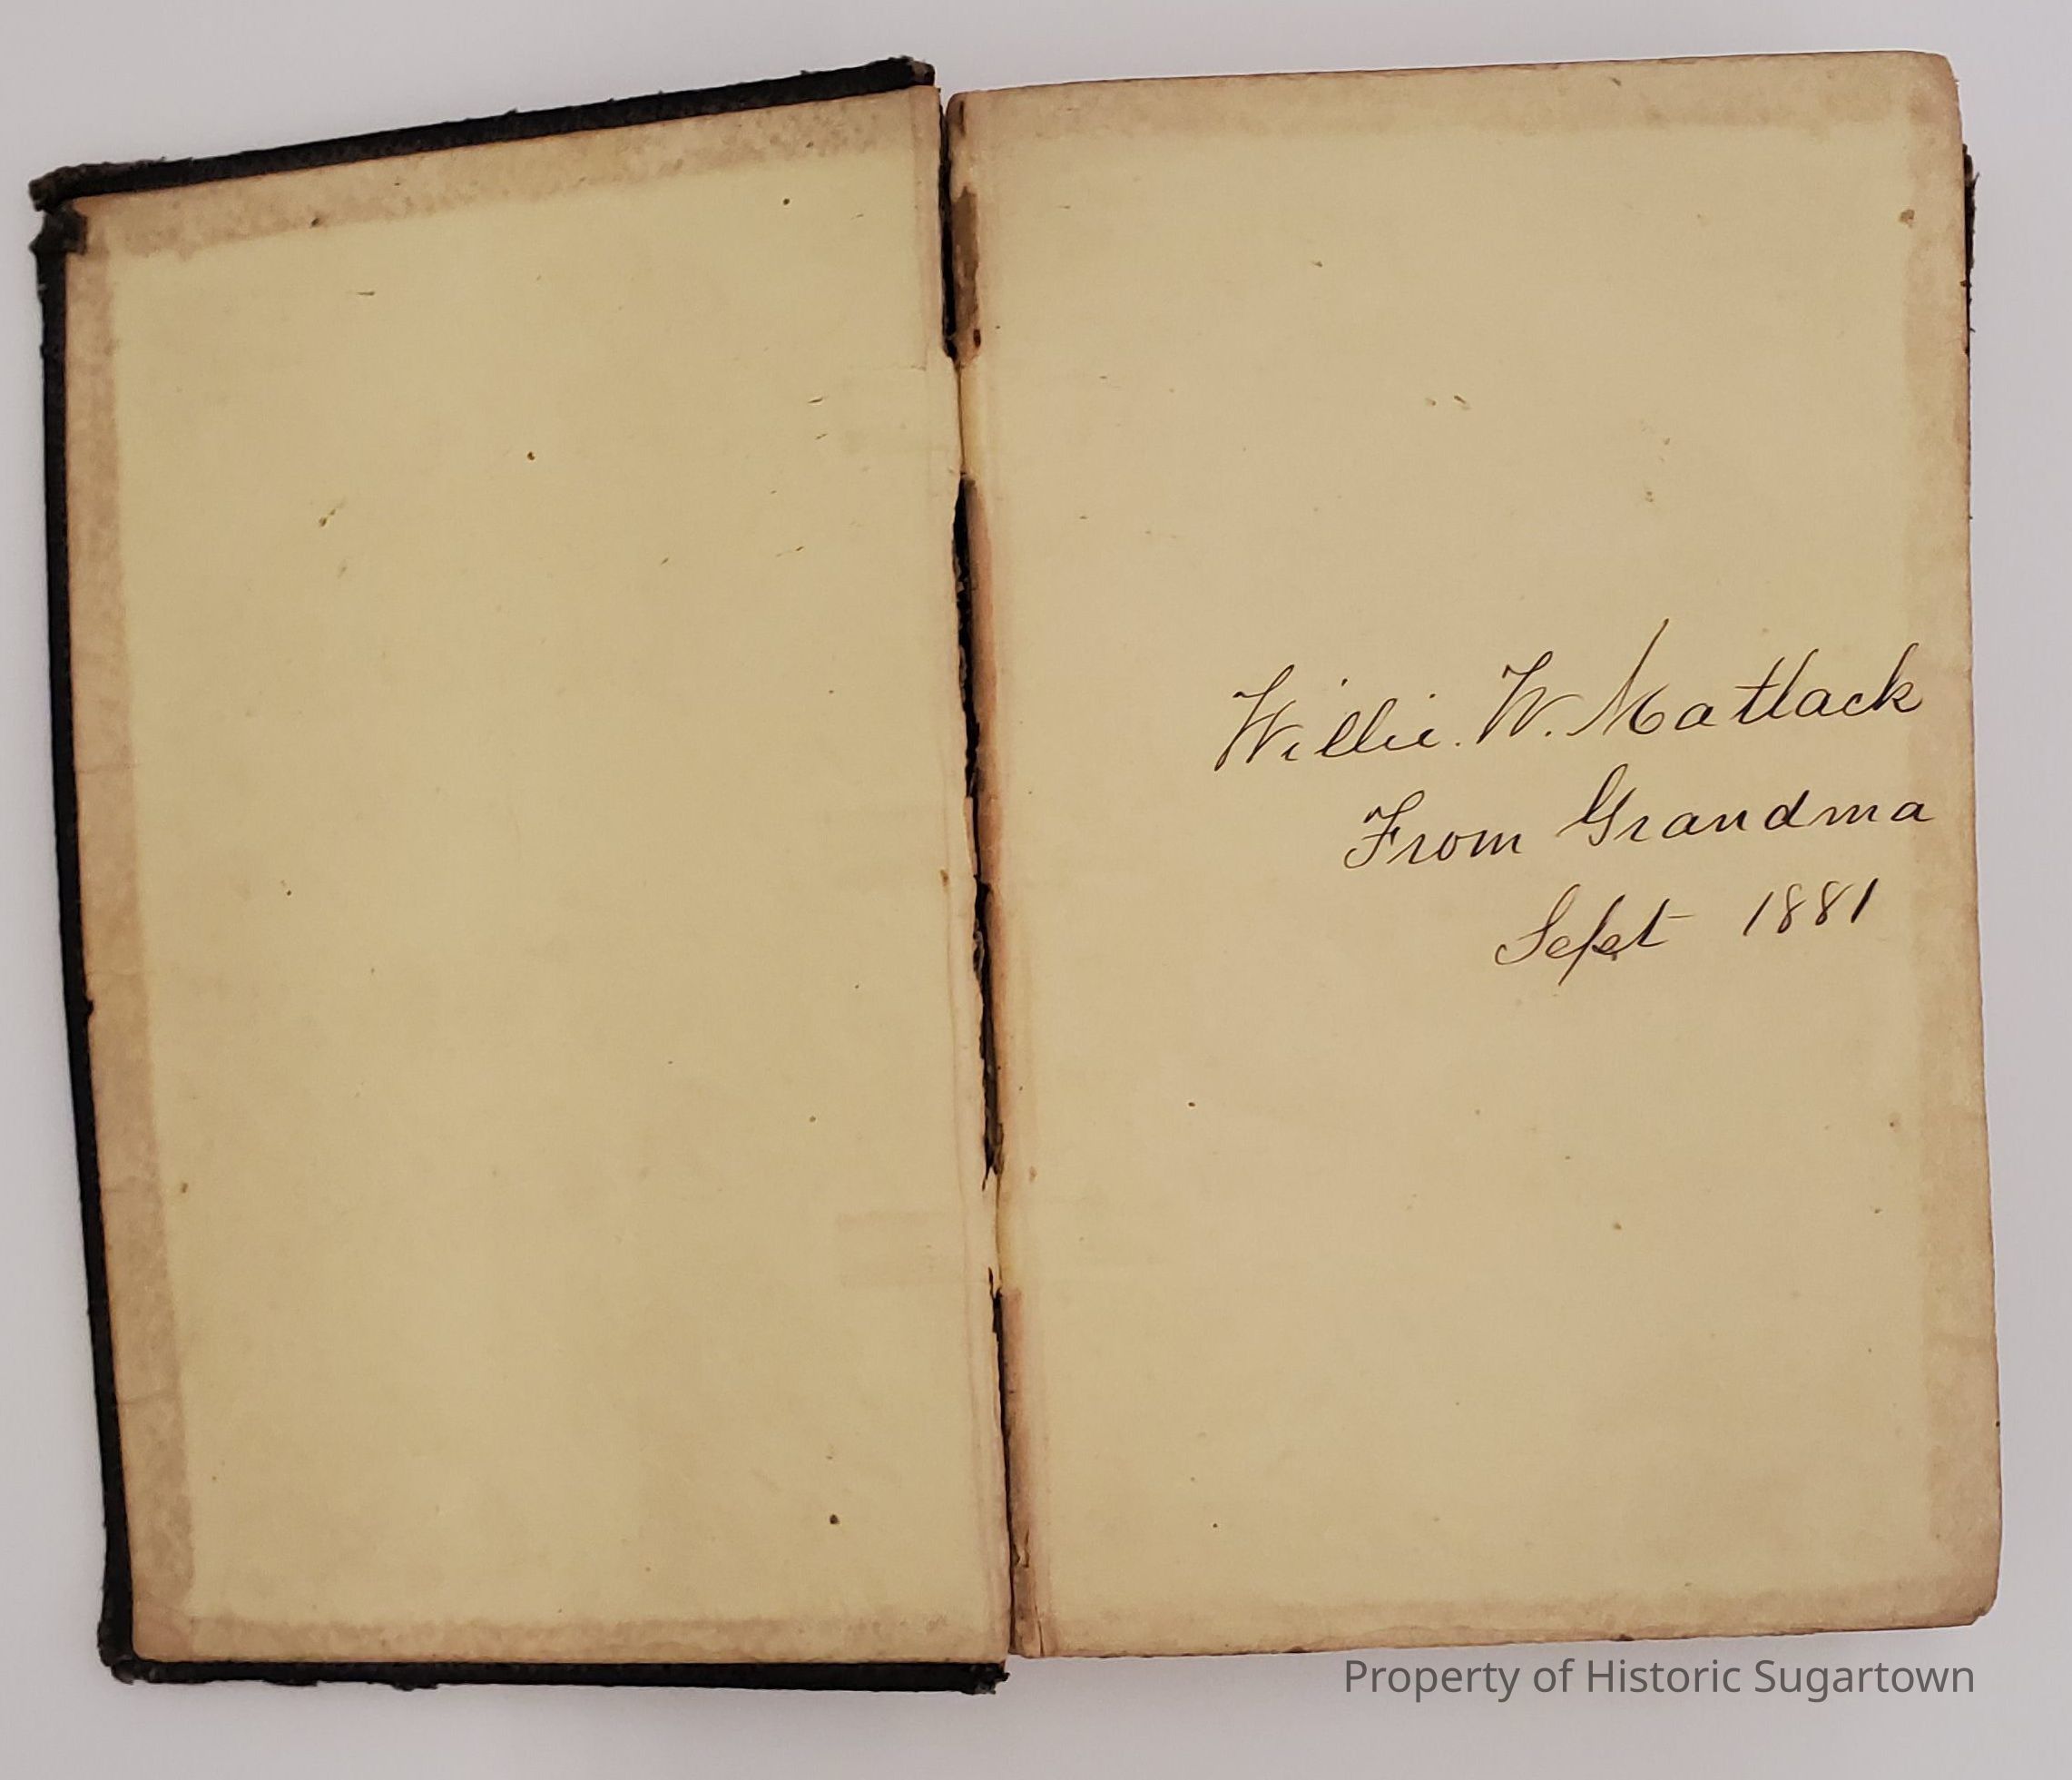 Willie. W. Matlack
From Grandma
Sept 1881
Property of Historic Sugartown